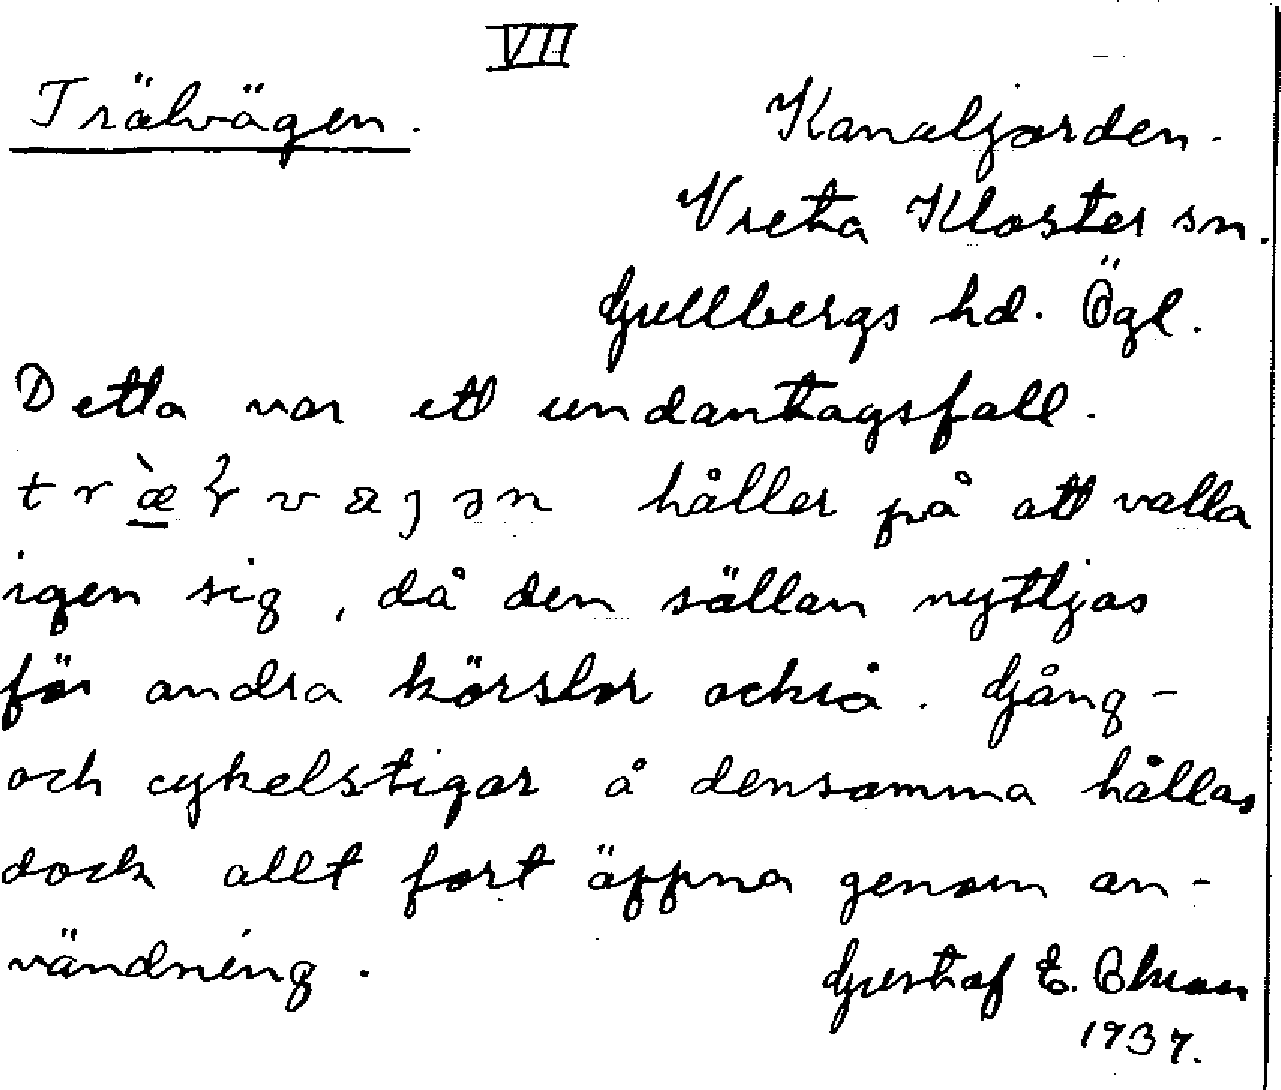 VII
Trälvägen.
Kanaljorden.
Vreta Kloster sn.
Gullbergs hd. Ögl.
Detta var ett undantagsfall.
håller på att valla
igen sig, då den sällan nyttjas
för andra körslor också. Gång-
och cykelstigar å densamma hållas
dock allt fort äppna genom an-
vändning.
Gustaf E.
1937.